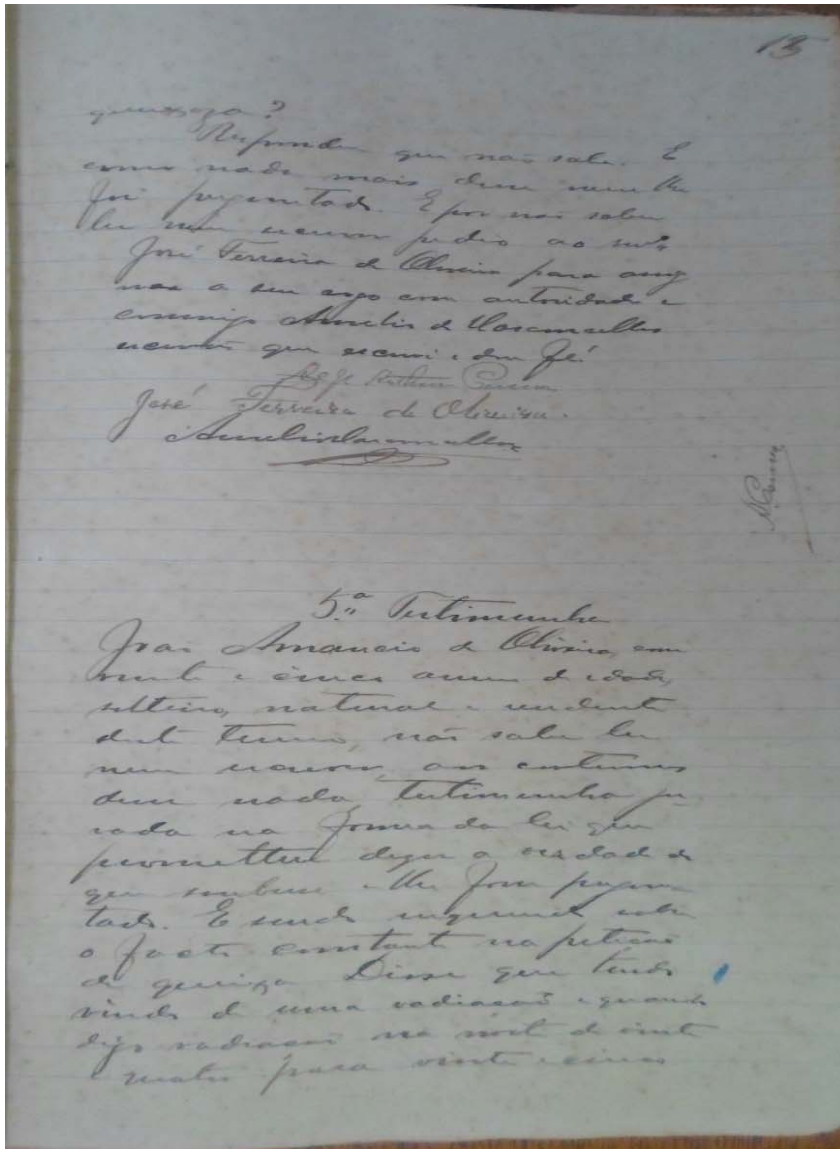 13
queixoza?
Respondeu que não sabe. E
como nada mais disse nem lhe
foi preguntado. E por não saber
ler nem escrever pedio ao
José Ferreira de Oliveira para assig
nar a seu rogo com autoridade e
commigo Aurelio de Vasconcellos
escrivão que escrevi e dou fé.
José Ferreira de Oliveira.
Aurelio Vasconcellos
5.ª Testimunha
João Amancio de Oliveira, com
vinte e cinco annos de edade,
solteiro, natural e residente
deste termo, não sabe ler
nem escrever, aos costumes
disse nada, testimunha ju
rada na forma da lei que
prometteu dizer a verdade do
que soubesse e lhe fosse pregun
tado. E sendo inquerido sobre
o facto constante na petição
de queixa Disse que tendo
vindo de uma vadiacão e quando
digo vadiacão na noite de vinte
e quatro para vinte e cinco